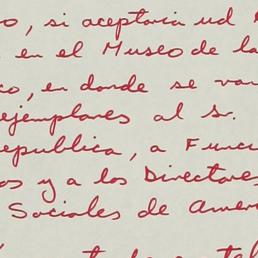 o, si aceptaria ud
en el Museo de la
co, en donde se va
ejemplares al sr.
epublica, a Funci
os y a los Directores
Sociales de Ameri